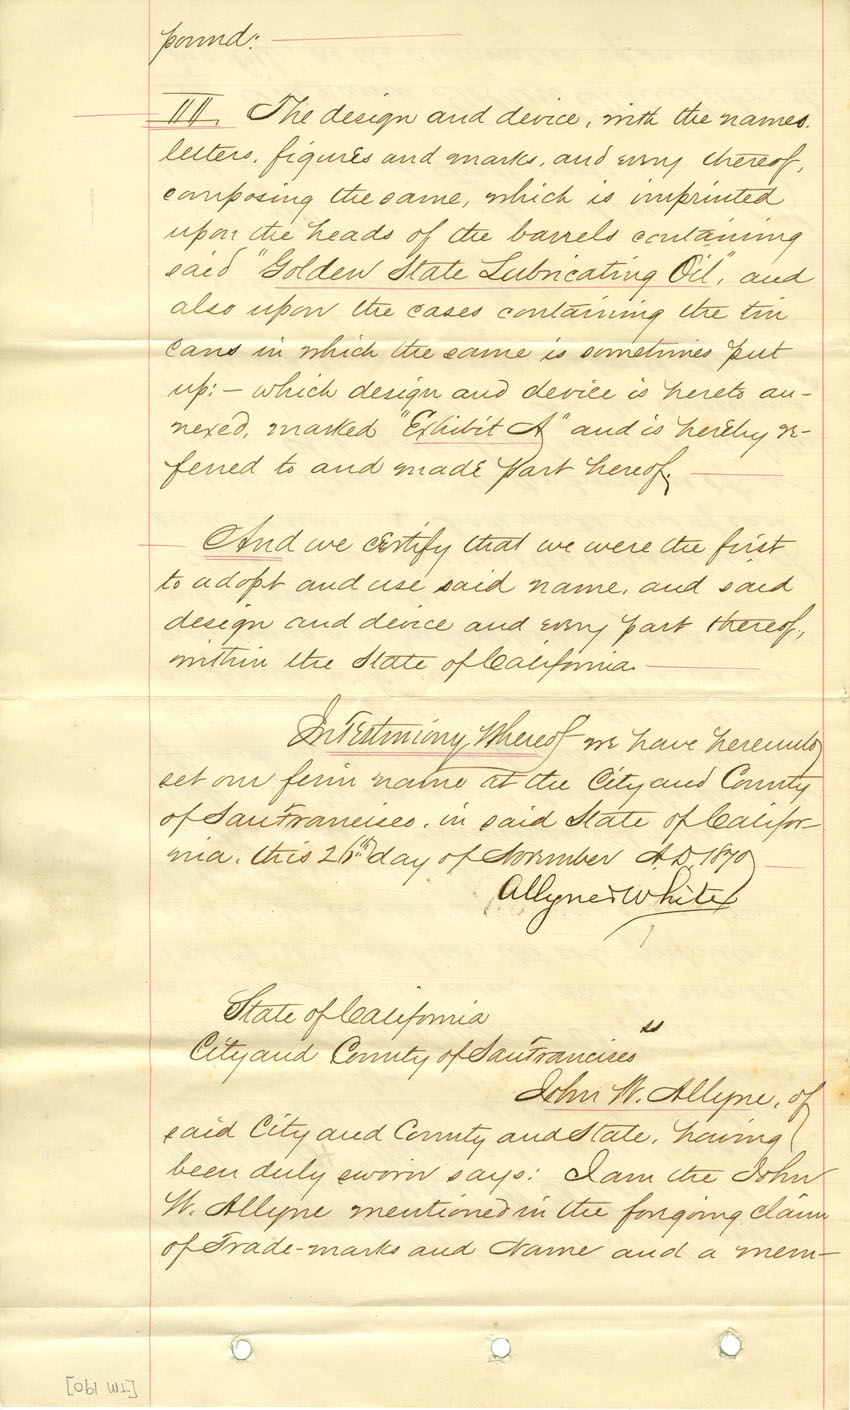 pound:
III. The design and device, with the names.
letters, figures and marks, and every thereof,
composing the same, which is imprinted
upon the heads of the barrels containing
said "Golden State Lubricating Oil", and
also upon the cases containing the tin
cans in which the same is sometimes put
up:— which design and device is hereto an-
nexed, marked "Exhibit A" and is hereby re-
ferred to and made part hereof.
And we certify that we were the first
to adopt and use said name, and said
design and device and every part thereof,
within the State of California.
In Testimony Whereof we have hereunto
set our firm name at the City and County
of San Francisco, in said State of Califor-
nia, this day of November A.D. 1870
Allyne & White
State of California
City and County of San Francisco ss
John W. Allyne, of
said City and County and State, having
been duly sworn says: I am the John
W. Allyne mentioned in the foregoing claim
of Trade-marks and Name and a mem-
[TM 190]